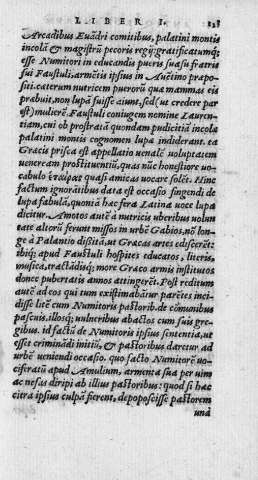 LIBER I.
Arcadibus Euãdri comitibus, palatini montis
incolã & magistrũ pecoris regij: gratificatumq́;
esse Numitori in educandis pueris suasu fratris
sui Faustuli, armẽtis ipsius in Auẽtino præpo-
siti. cæterum nutricem puerorũ quæ mammas eis
præbuit, non lupã fuisse aiunt, sed (ut credere par
est) mulierẽ. Faustuli coniugem nomine Lauren-
tiam, cui ob prostratã quondam pudicitiã incolæ
palatini montis cognomen lupa indiderant. ea
Græcis prisca est appellatio uenalẽ uoluptatem
ueneream prostituentiũ, quas nũc honestiore uo-
cabulo ἑταίρας quasi amicas uocare solẽt. Hinc
factum ignoratibus data est occasio fingendi de
lupa fabulã, quoniã hæc fera Latina uoce lupa
dicitur. Amotos autẽ à nutricis uberibus uolun
tate altorũ ferunt missos in urbẽ Gabios, nõ lon-
gè à Palantio dissitã, ut Græcas artes ediscerẽt:
ibiq́; apud Faustuli hospites educatos, literis,
musica, tractãdisq́; more Græco armis institutos
donec pubertatis annos attingerẽt. Post reditum
autẽ ad eos qui tum existimabãtur parẽtes inci-
disse litẽ cum Numitoris pastorib. de cõmunibus
pascuis, illosq́; uulneribus abactos cum suis gre-
gibus. id factũ de Numitoris ipsius sententia, ut
esset criminãdi initiũ, & pastoribus daretur ad
urbẽ ueniendi occasio. quo facto Numitorẽ uo-
ciferatũ apud Amulium, armenta sua per uim
ac nefas diripi ab illius pastoribus: quod si hæc
citra ipsius culpã fierent, depoposcisse pastorem
unà